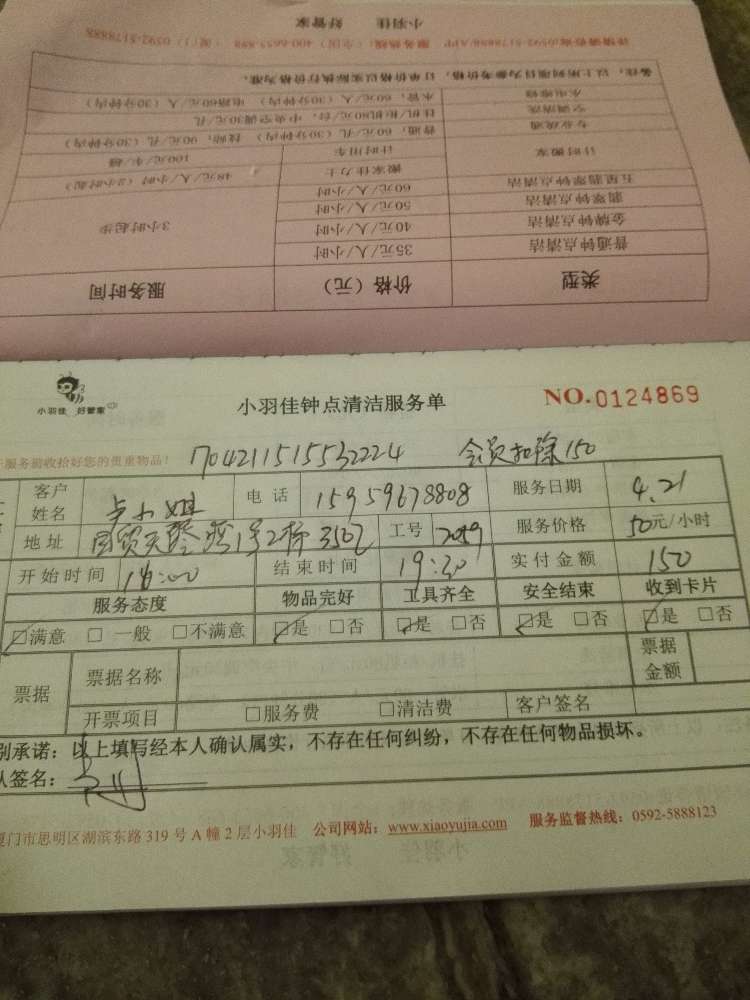 小羽佳 好管家
详情请咨询:0592-5178888/APP 服务热线:(全国)400-6653-888 (厦门)0592-5178888
备注:以上所列项目为参考价格,订单价格以实际执行价格为准。
水电维修 水管:60元/人(30分钟内) 电路60元/人(30分钟内)
空调清洗 挂机/柜机80元/台,中央空调30元/孔
专业疏通 普通:60元/孔(30分钟内) 较难:90元/孔(30分钟内)
计时搬家 计时用车 100元/车/趟
搬家佳力士 48元/人/小时(2小时起)
五星翡翠钟点清洁 60元/人/小时
翡翠钟点清洁 50元/人/小时
金牌钟点清洁 40元/人/小时 3小时起步
普通钟点清洁 35元/人/小时
类型 价格(元) 服务时间
小羽佳 好管家
小羽佳钟点清洁服务单
NO.0124869
服务前收拾好您的贵重物品!
1704211515532224 会员扣除150
客户姓名 卢小姐 电话 15959678808 服务日期 4.21
地址 国贸天琴湾1号2梯350Z 工号 2059 服务价格 50元/小时
开始时间 16:00 结束时间 19:30 实付金额 150
服务态度 物品完好 工具齐全 安全结束 收到卡片
满意 一般 不满意 是 否 是 否 是 否 是 否
票据 票据名称 票据金额
开票项目 服务费 清洁费 客户签名
别承诺:以上填写经本人确认属实,不存在任何纠纷,不存在任何物品损坏。
签名:
厦门市思明区湖滨东路319号A幢2层小羽佳 公司网站:www.xiaoyujia.com 服务监督热线:0592-5888123